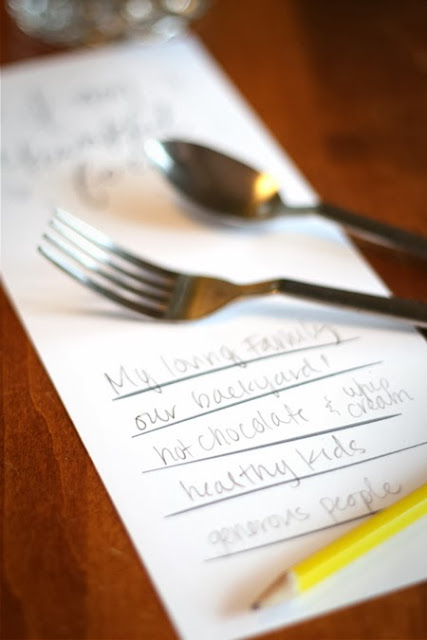 I am
thankful
for
My loving Family
our backyard!
hot chocolate & whip cream
healthy kids
generous people